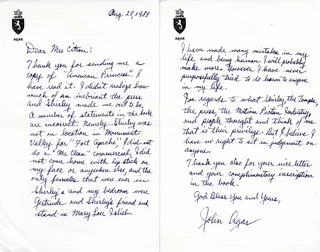 AGAR
Aug. 28, 1988
Dear Mrs
Thank you for sending me a
copy of "American Princess". I
have read it. I didn't realize how
much of an inebriant the press
and Shirley made me out to be.
A number of statements in the book
are incorrect. Namely: Shirley was
not on location in Monument
Valley for "Fort Apache", I did not
do a "Mr Clean" commercial, I did
not come home with lip stick on
my face or anywhere else, and the
only females that was ever in
Shirley's and my bedroom were
Gertrude and Shirley's friend and
stand in Mary Lou Isleib.
AGAR
I have made many mistakes in my
life and being human I will probably
make more. However I have never
purposefully tried to do harm to anyone
in my life.
In regards to what Shirley the Temples,
the press, the Motion Picture Industry
and people thought and think of me
that is their privilege. But I believe I
have no right to sit in judgment on
anyone.
Thank you also for your nice letter
and your complimentary inscription
in the book.
God Bless You and Yours,
John Agar